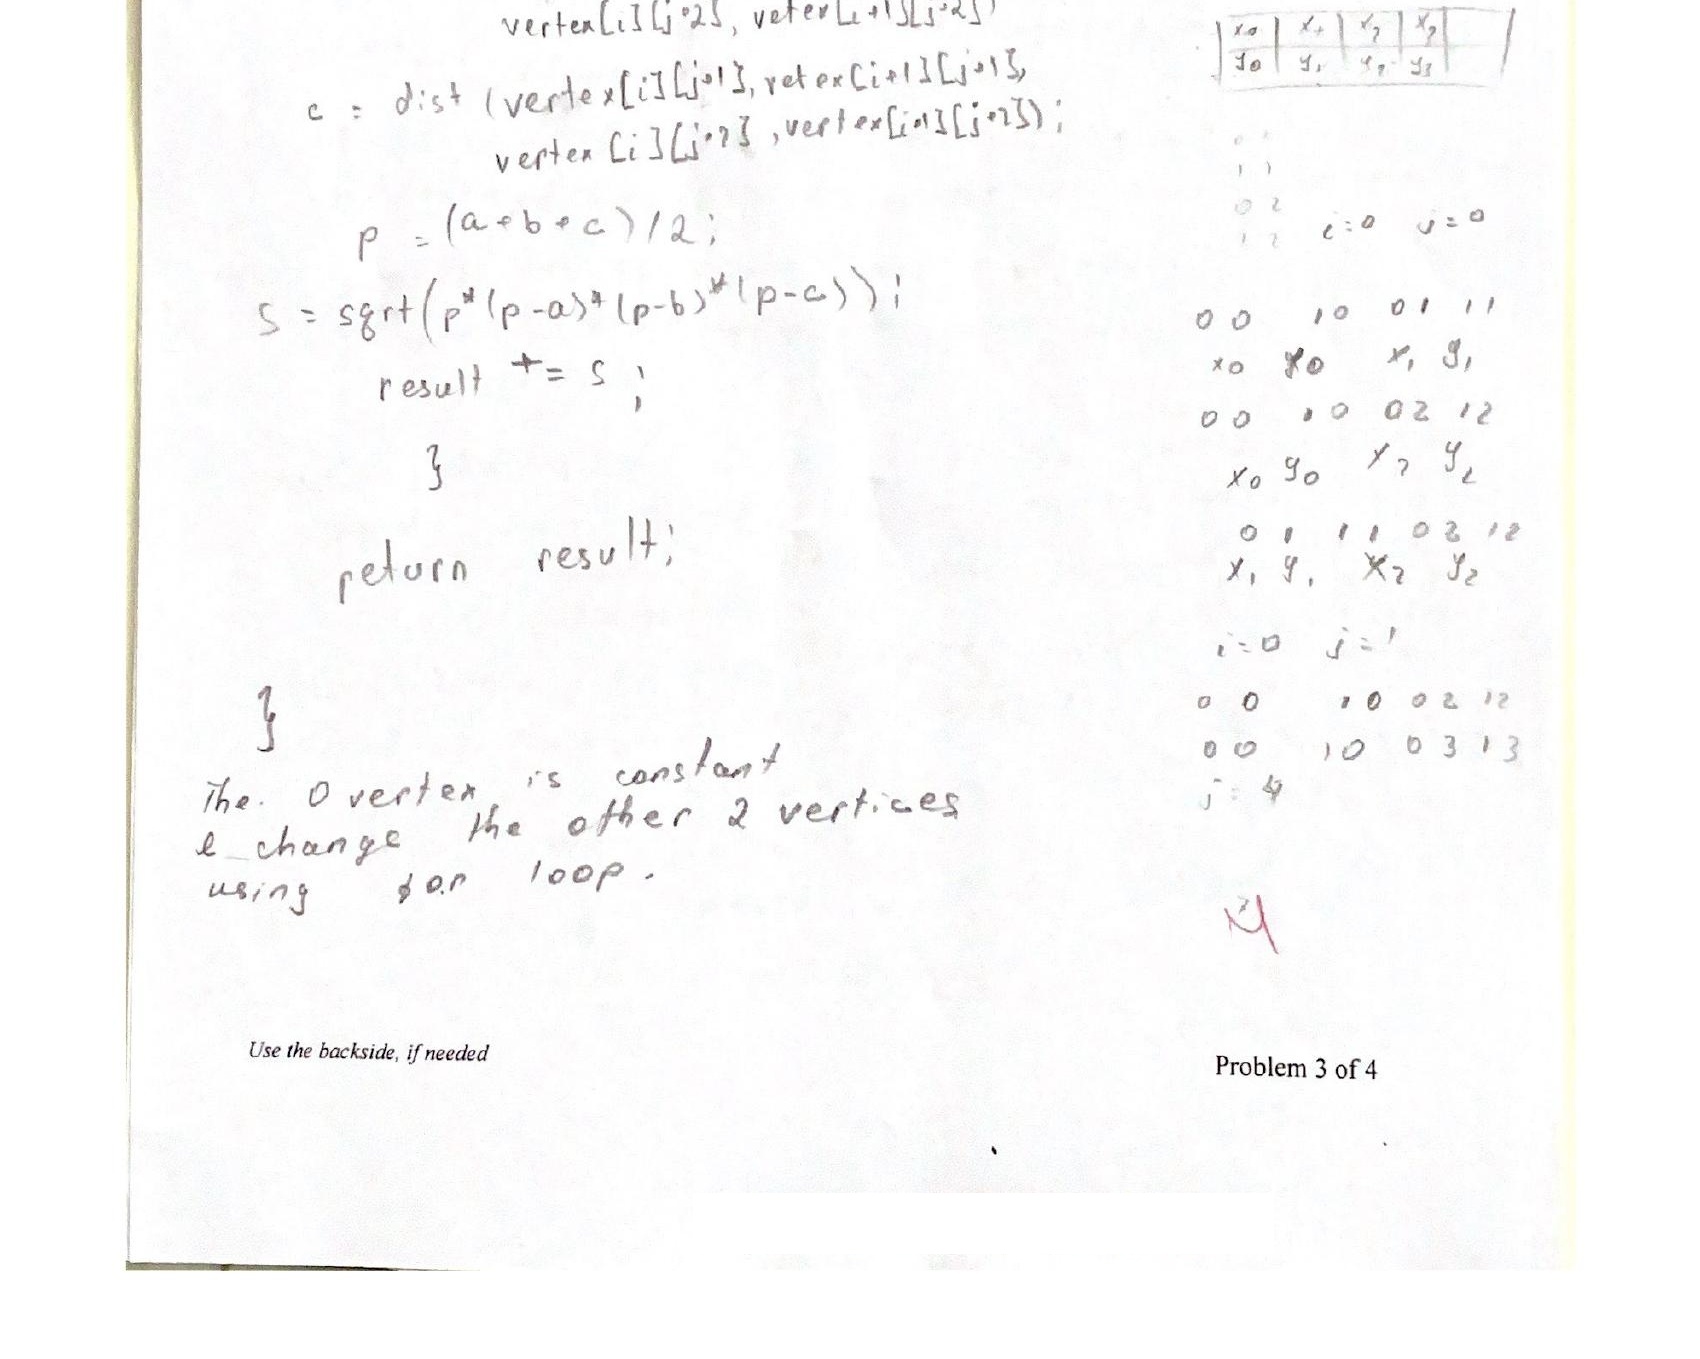 vertex[i][j+2], vetex[i+1][j+2]
c = dist (vertex[i][j+1], vetex[i+1][j+1],
vertex [i][j+2], vertex[i+1][j+2]);
p = (a+b+c)/2;
s = sqrt(p*(p-a)*(p-b)*(p-c));
result += s;
}
return result;
}
The 0 vertex is constant
change the other 2 vertices
using for loop.
x0 x1 x2 x3
y0 y1 y2 y3
1 1
0 2
1 2 i=0 j=0
0 0 1 0 0 1 1 1
x0 y0 x1 y1
0 0 1 0 0 2 1 2
x0 y0 x2 y2
0 1 1 1 0 2 1 2
x1 y1 x2 y2
i=0 j=1
0 0 1 0 0 2 1 2
0 0 1 0 0 3 1 3
j = 4
Use the backside, if needed
Problem 3 of 4